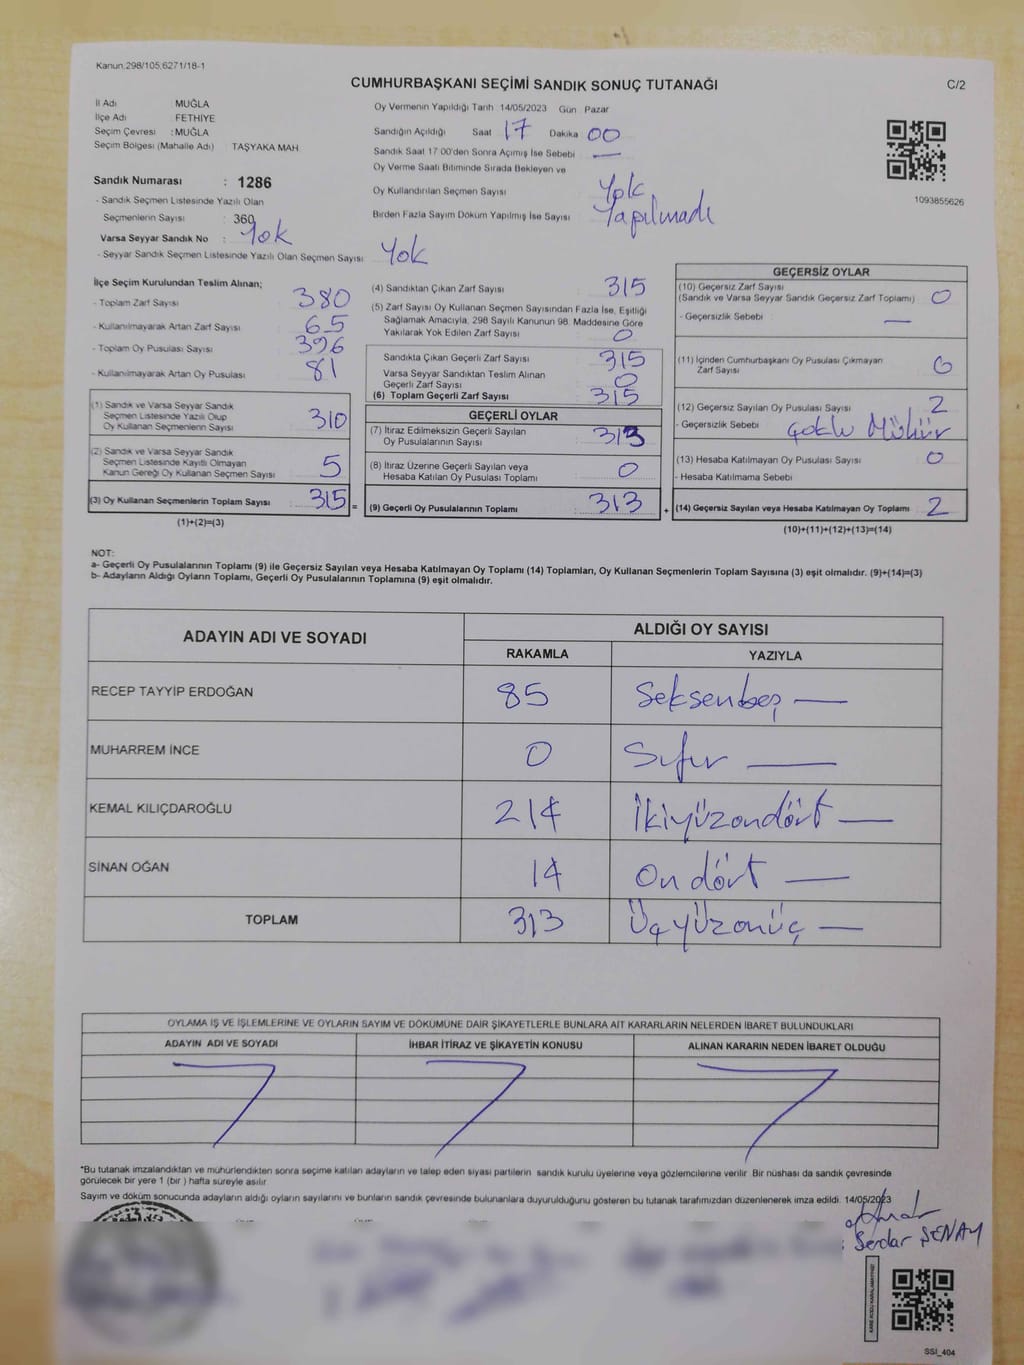 Kanun.298/105,6271/18-1
CUMHURBAŞKANI SEÇİMİ SANDIK SONUÇ TUTANAĞI
C/2
İl Adı : MUĞLA
İlçe Adı : FETHİYE
Seçim Çevresi : MUĞLA
Seçim Bölgesi (Mahalle Adı) : TAŞYAKA MAH
Sandık Numarası : 1286
- Sandık Seçmen Listesinde Yazılı Olan
Seçmenlerin Sayısı : 360
Varsa Seyyar Sandık No : Yok
- Seyyar Sandık Seçmen Listesinde Yazılı Olan Seçmen Sayısı Yok
Oy Vermenin Yapıldığı Tarih 14/05/2023 Gün Pazar
Sandığın Açıldığı Saat 17 Dakika 00
Sandık Saat 17 00'den Sonra Açımış İse Sebebi —
Oy Verme Saati Bitiminde Sırada Bekleyen ve
Oy Kullandırılan Seçmen Sayısı Yok
Birden Fazla Sayım Döküm Yapılmış İse Sayısı Yapılmadı
1093855626
İlçe Seçim Kurulundan Teslim Alınan;
- Toplam Zarf Sayısı 380
- Kullanılmayarak Artan Zarf Sayısı 65
- Toplam Oy Pusulası Sayısı 396
- Kullanılmayarak Artan Oy Pusulası 81
(1) Sandık ve Varsa Seyyar Sandık
Seçmen Listesinde Yazılı Olup
Oy Kullanan Seçmenlerin Sayısı 310
(2) Sandık ve Varsa Seyyar Sandık
Seçmen Listesinde Kayıtlı Olmayan
Kanun Gereği Oy Kullanan Seçmen Sayısı 5
(3) Oy Kullanan Seçmenlerin Toplam Sayısı 315 =
(1)+(2)=(3)
(4) Sandıktan Çıkan Zarf Sayısı 315
(5) Zarf Sayısı Oy Kullanan Seçmen Sayısından Fazla İse, Eşitliği
Sağlamak Amacıyla, 298 Sayılı Kanunun 98. Maddesine Göre
Yakılarak Yok Edilen Zarf Sayısı 0
Sandıkta Çıkan Geçerli Zarf Sayısı 315
Varsa Seyyar Sandıktan Teslim Alınan
Geçerli Zarf Sayısı 0
(6) Toplam Geçerli Zarf Sayısı 315
GEÇERLİ OYLAR
(7) İtiraz Edilmeksizin Geçerli Sayılan
Oy Pusulalarının Sayısı 313
(8) İtiraz Üzerine Geçerli Sayılan veya
Hesaba Katılan Oy Pusulası Toplamı 0
(9) Geçerli Oy Pusulalarının Toplamı 313 +
GEÇERSİZ OYLAR
(10) Geçersiz Zarf Sayısı
(Sandık ve Varsa Seyyar Sandık Geçersiz Zarf Toplamı) 0
- Geçersizlik Sebebi : —
(11) İçinden Cumhurbaşkanı Oy Pusulası Çıkmayan
Zarf Sayısı 0
(12) Geçersiz Sayılan Oy Pusulası Sayısı 2
- Geçersizlik Sebebi Çoklu Mühür
(13) Hesaba Katılmayan Oy Pusulası Sayısı 0
- Hesaba Katılmama Sebebi
(14) Geçersiz Sayılan veya Hesaba Katılmayan Oy Toplamı 2
(10)+(11)+(12)+(13)=(14)
NOT:
a- Geçerli Oy Pusulalarının Toplamı (9) ile Geçersiz Sayılan veya Hesaba Katılmayan Oy Toplamı (14) Toplamları, Oy Kullanan Seçmenlerin Toplam Sayısına (3) eşit olmalıdır. (9)+(14)=(3)
b- Adayların Aldığı Oyların Toplamı, Geçerli Oy Pusulalarının Toplamına (9) eşit olmalıdır.
ADAYIN ADI VE SOYADI
ALDIĞI OY SAYISI
RAKAMLA YAZIYLA
RECEP TAYYİP ERDOĞAN 85 Seksenbeş —
MUHARREM İNCE 0 Sıfır —
KEMAL KILIÇDAROĞLU 214 İkiyüzondört —
SİNAN OĞAN 14 On dört —
TOPLAM 313 Üçyüzonüç —
OYLAMA İŞ VE İŞLEMLERİNE VE OYLARIN SAYIM VE DÖKÜMÜNE DAİR ŞİKAYETLERLE BUNLARA AİT KARARLARIN NELERDEN İBARET BULUNDUKLARI
ADAYIN ADI VE SOYADI İHBAR İTİRAZ VE ŞİKAYETİN KONUSU ALINAN KARARIN NEDEN İBARET OLDUĞU
*Bu tutanak imzalandıktan ve mühürlendikten sonra seçime katılan adayların ve talep eden siyasi partilerin sandık kurulu üyelerine veya gözlemcilerine verilir Bir nüshası da sandık çevresinde
görülecek bir yere 1 (bir ) hafta süreyle asılır
Sayım ve döküm sonucunda adayların aldığı oyların sayılarını ve bunların sandık çevresinde bulunanlara duyurulduğunu gösteren bu tutanak tarafımızdan düzenlenerek imza edildi. 14/05/2023
Serdar ŞENAY
KARE KODU KARALAMAYINIZ!
SSI_404